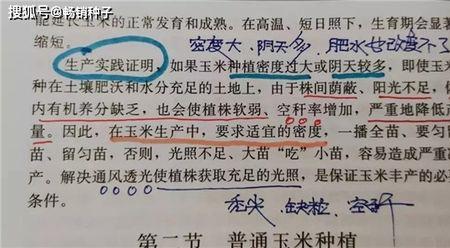 搜狐号@畅销种子
能延长玉米的正常发育和成熟。在高温、短日照下，生育期会显著
缩短。
密度大、阴天多，肥水也改度不了
生产实践证明，如果玉米种植密度过大或阴天较多，即使玉米
种在土壤肥沃和水分充足的土地上，由于株间荫蔽、阳光不足，体
内有机养分缺乏，也会使植株软弱、空秆率增加，严重地降低产
量。因此，在玉米生产中，要求适宜的密度，一播全苗，要匀
苗、留匀苗，否则，光照不足、大苗“吃”小苗，容易造成严重减
产。解决通风透光使植株获取充足的光照，是保证玉米丰产的必
条件。
秃尖、缺粒、空秆
第二节 普通玉米种植